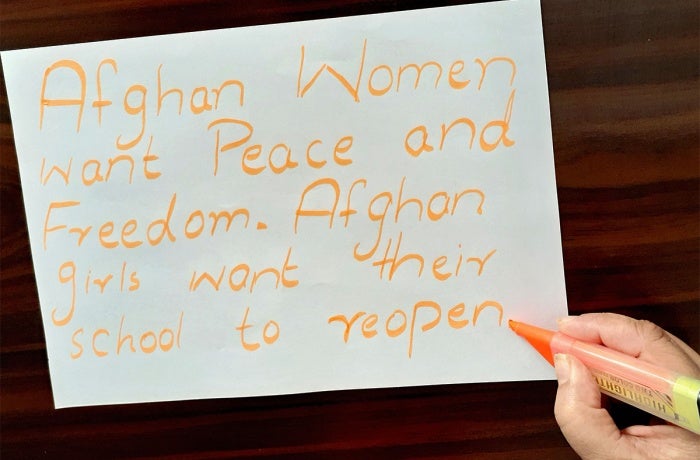 Afghan Women
want Peace and
Freedom. Afghan
girls want their
school to reopen
HIGHLIGHTER